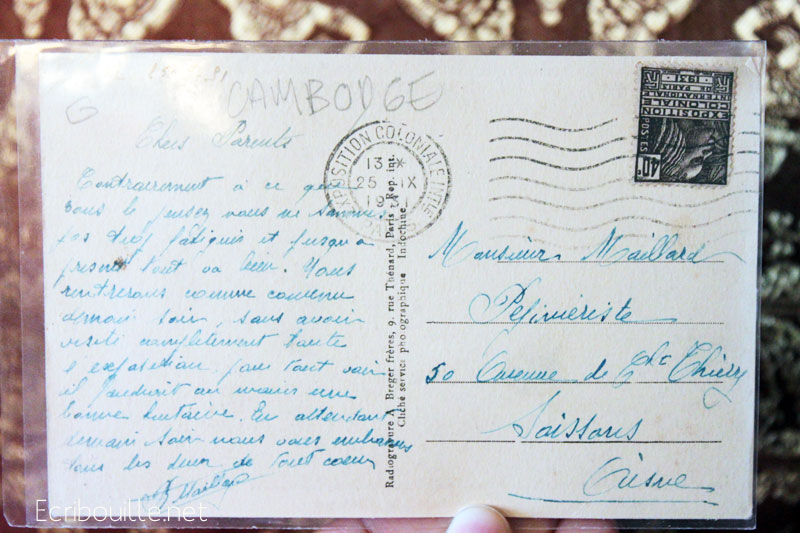 CAMBODGE
G
Chers Parents
Contrairement à ce que
vous le pensez nous ne sommes
pas trop fatigués et jusqu'à
présent tout va bien. Nous
rentrerons comme convenu
demain soir, sans avoir
visité complètement toute
l'exposition, pour tout voir
il faudrait au moins une
bonne huitaine. En attendant
demain soir nous vous embrassons
tous les deux de tout coeur
Maillard
EXPOSITION COLONIALE INTle
13 X
25 IX
1931
Radiogravure A. Breger frères, 9, rue Thénard, Paris Rep. int.
Cliché service photographique Indochine
EXPOSITION
COLONIALE
INTERNATIONALE
PARIS 1931
POSTES
40c
Monsieur Maillard
Pépiniériste
50 Avenue de Thiery
Soissons
Aisne
Ecribouille.net